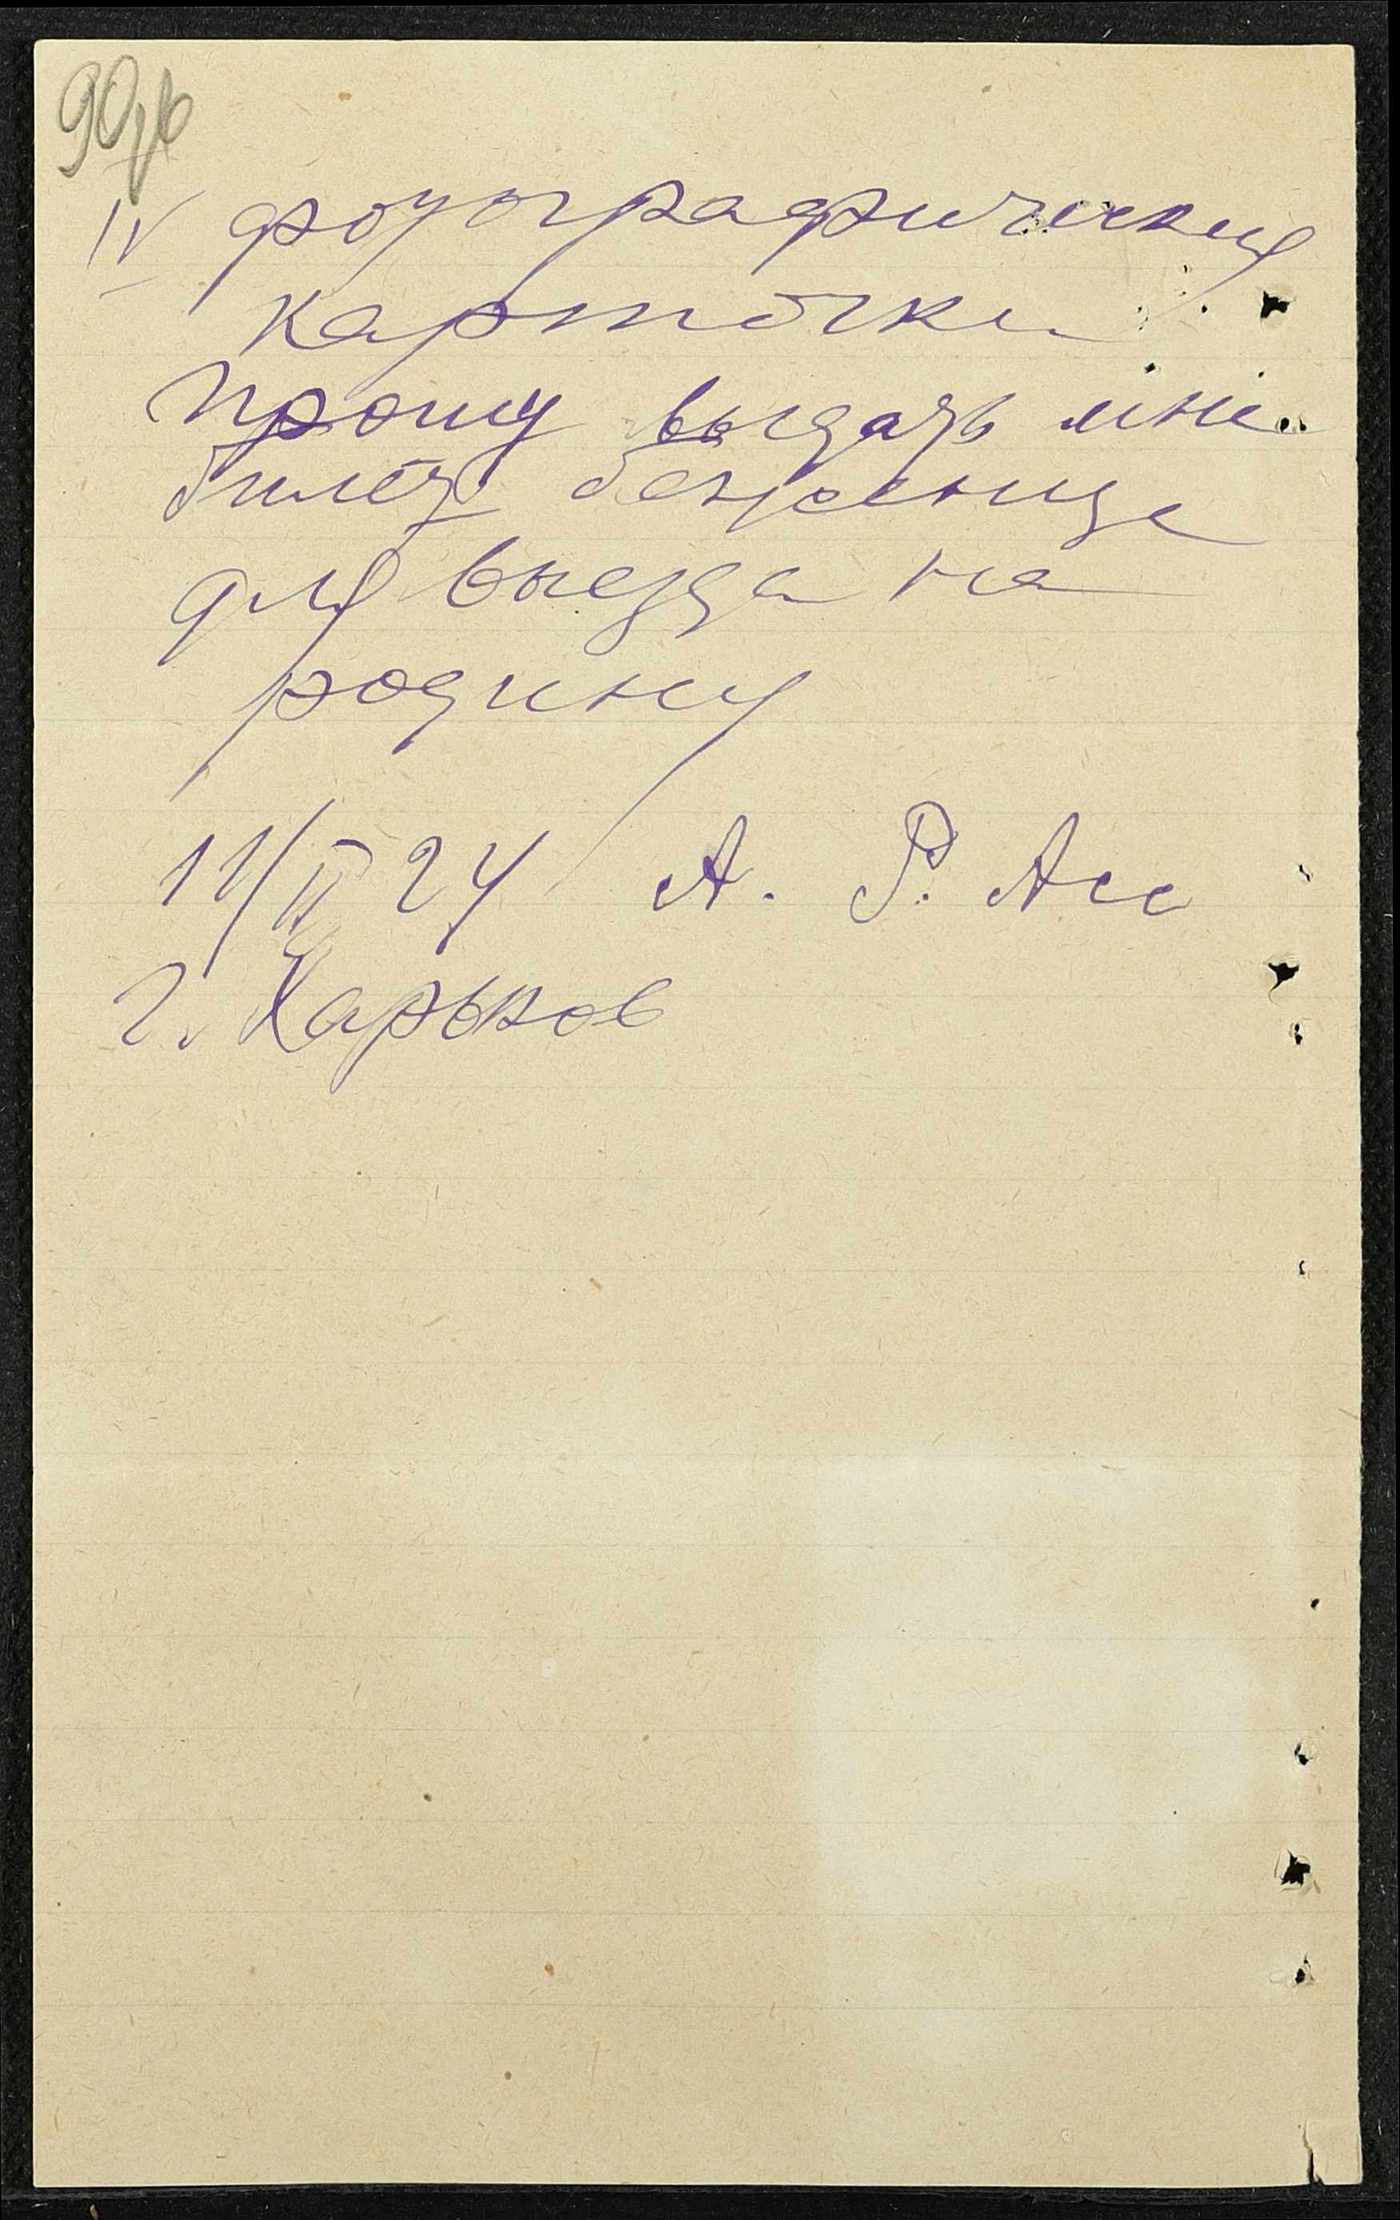 90об
IV фотографическия
карточки
Прошу выдать мне
билет беженца
для выезда на
родину
11/II 24 А. Р. Асс
г. Харьков